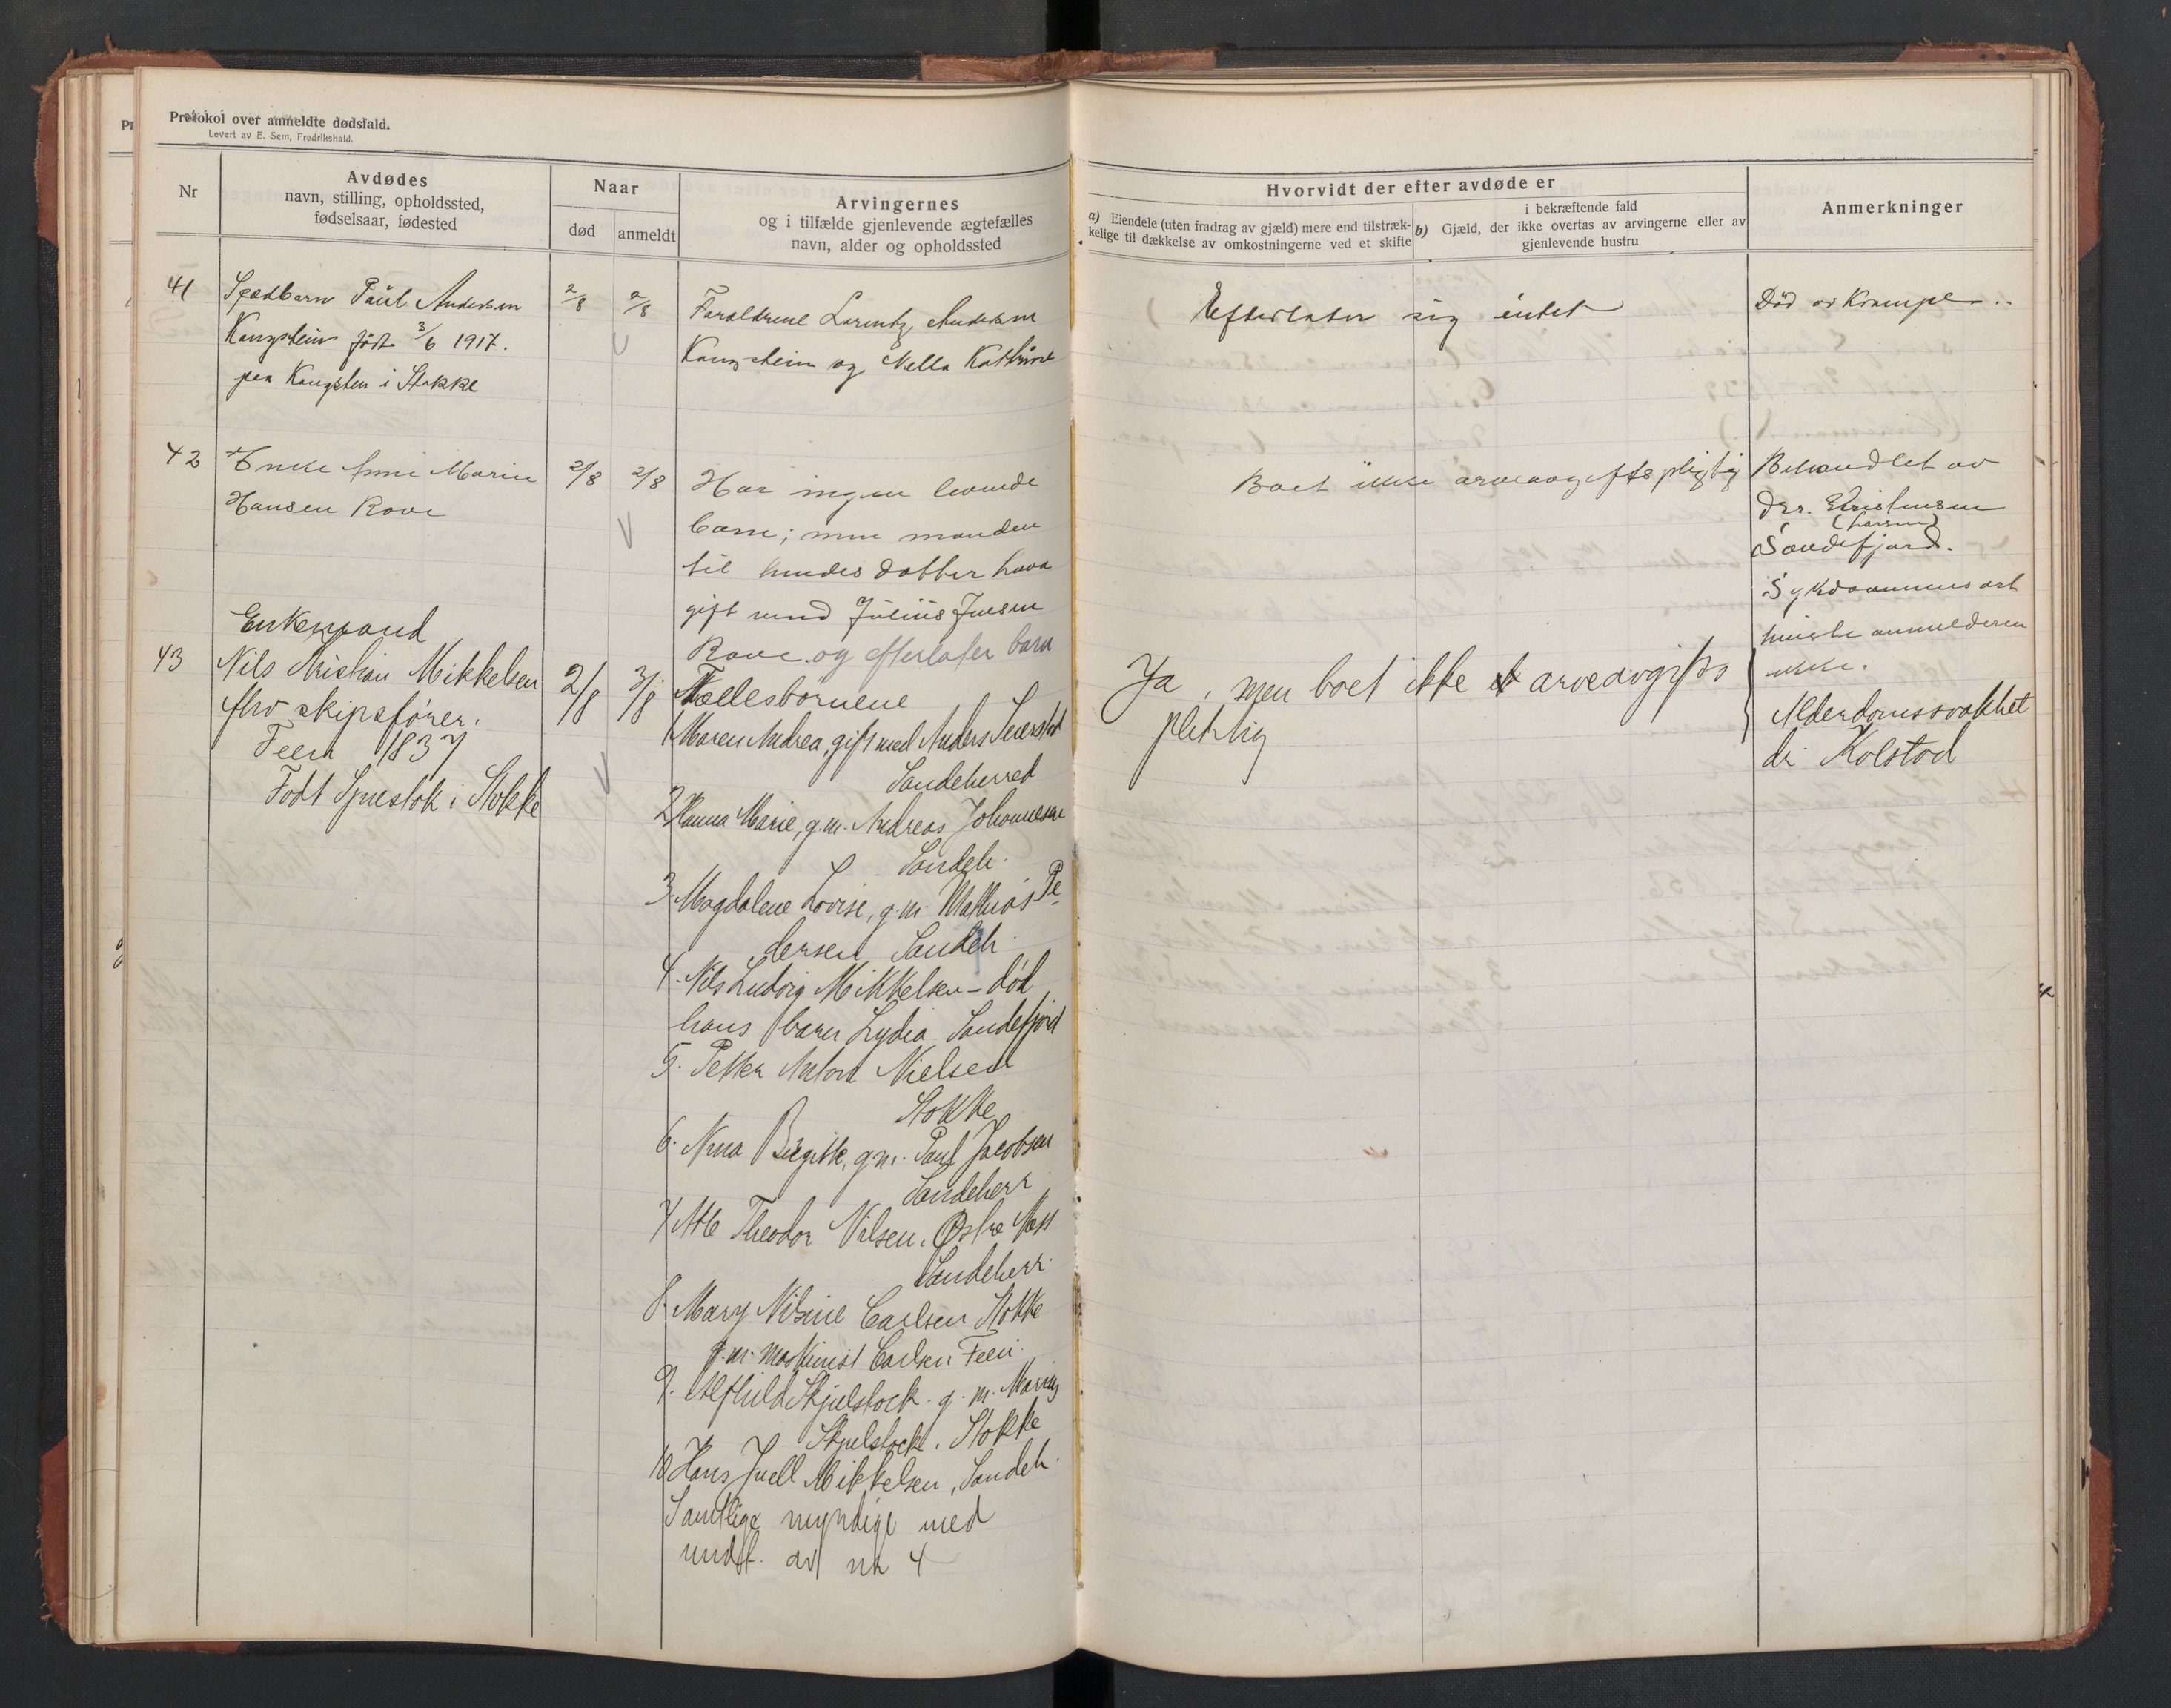 Protokol over anmeldte dødsfald.
Levert av E. Sem, Fredrikshald.
Nr
Avdødes
navn, stilling, opholdssted,
fødselsaar, fødested
Naar
død
anmeldt
Arvingernes
og i tilfælde gjenlevende ægtefælles
navn, alder og opholdssted
Hvorvidt der efter avdøde er
a) Eiendele (uten fradrag av gjæld) mere end tilstræk-
kelige til dækkelse av omkostningerne ved et skifte
i bekræftende fald
b) Gjæld, der ikke overtas av arvingerne eller av
gjenlevende hustru
Anmerkninger
41
Spædbarn Paul Andersen
Kangstein født 3/6 1917.
paa Kangsten i Stokke
2/8
2/8
Forældrene Lorentz Andersen
Kangstein og Nella Kathrine
Efterlater sig intet
Død av Krampe
42
Enke Anne Marie
Hansen Rove
2/8
2/8
Har ingen levende
barn; men manden
til hendes datter
gift med Julius Juesen
Rove og efterlater barn
Boet ikke arveavgiftspligtig
Behandlet av
Dr. Christensen
(Larsen)
Sandefjord.
Sykdommens art
anmelderen
ikke.
43
Enkemand
Nils Kristian Mikkelsen
fhv skipsfører.
Feen 1837
Født i Stokke
2/8
3/8
Fællesbørnene
1 Maren Andrea, gift med Anders
Sandeherred
2 Hanna Marie, g.m. Andreas Johannesen
Sandeh.
3. Magdalene Lovise, g.m. Mathias Pe-
dersen Sandeh.
4. Nils Ludvig Mikkelsen - død
hans barn Lydia Sandefjord
5. Petter Anton Nielsen
Stokke
6. Anna Birgitte, g.m. Paul Jacobsen
Sandeherr
7 Theodor Nilsen. Østre
Sandeherr.
8. Mary Nilsine Carlsen Stokke
g.m. maskinist Carlsen Feen.
9. Alfhild Skjelstock. g.m. Marius
Skjelstock. Stokke
10 Hans Juell Mikkelsen, Sandeh.
Samtlige myndige med
undt. av nr 4
Ja, men boet ikke arveavgifts
pliktig
Alderdomssvakhet
dr Kolstad